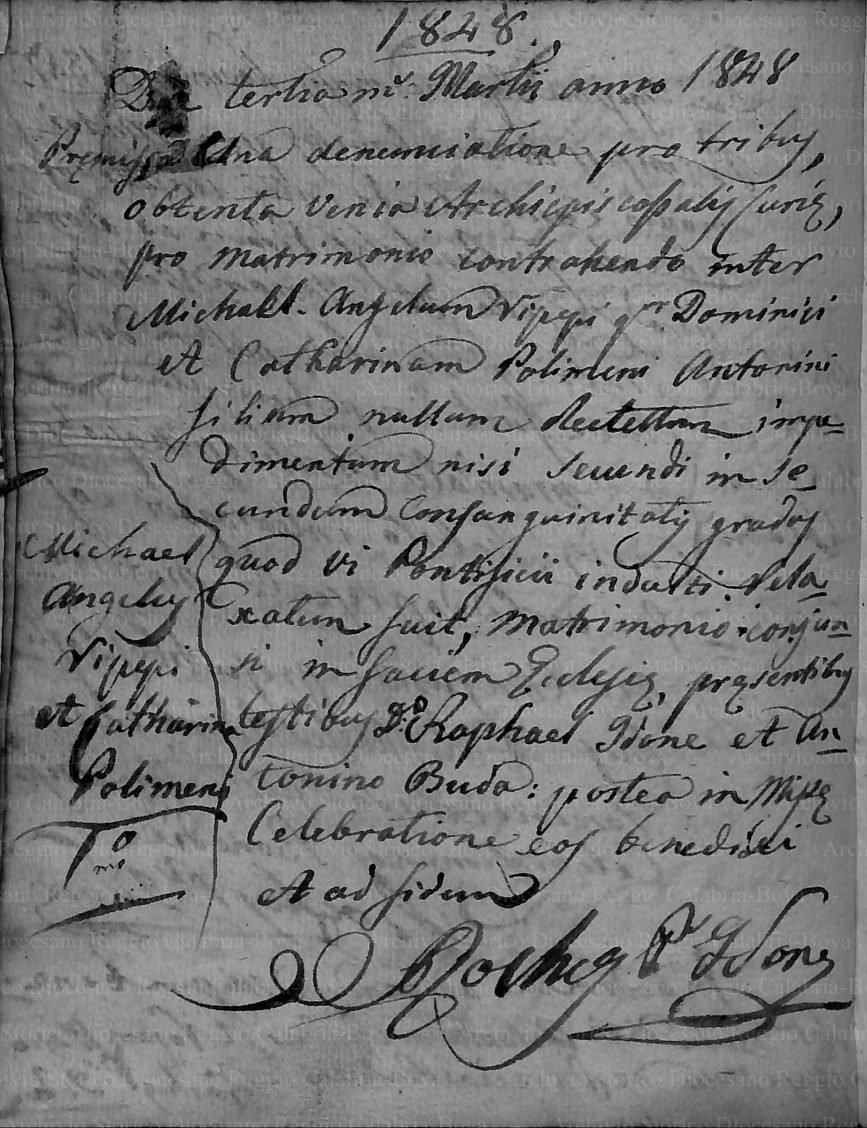 1848.
Die tertia m.s Martii anno 1848
Premissa Una denunciatione pro tribus,
obtenta venia Archiepiscopalis Curię,
pro matrimonio contrahendo inter
Michael-Angelum Vipepi q.m Dominici
et Catharinam Polimeni Antonini
filiam nullum detectum impe-
dimentum nisi secundi in se-
cundum consanguinitatis gradus
quod vi Pontificii indulti rela-
xatum fuit, matrimonio conjun-
si in faciem Eclesię, pręsentibus
testibus D.o Raphael Idone et An-
tonino Buda: postea in Missę
Celebratione eos benedixi
et ad fidem
Rochus P.r Idone
Michael
Angelus
Vipepi
et Catharina
Polimeni
1mo